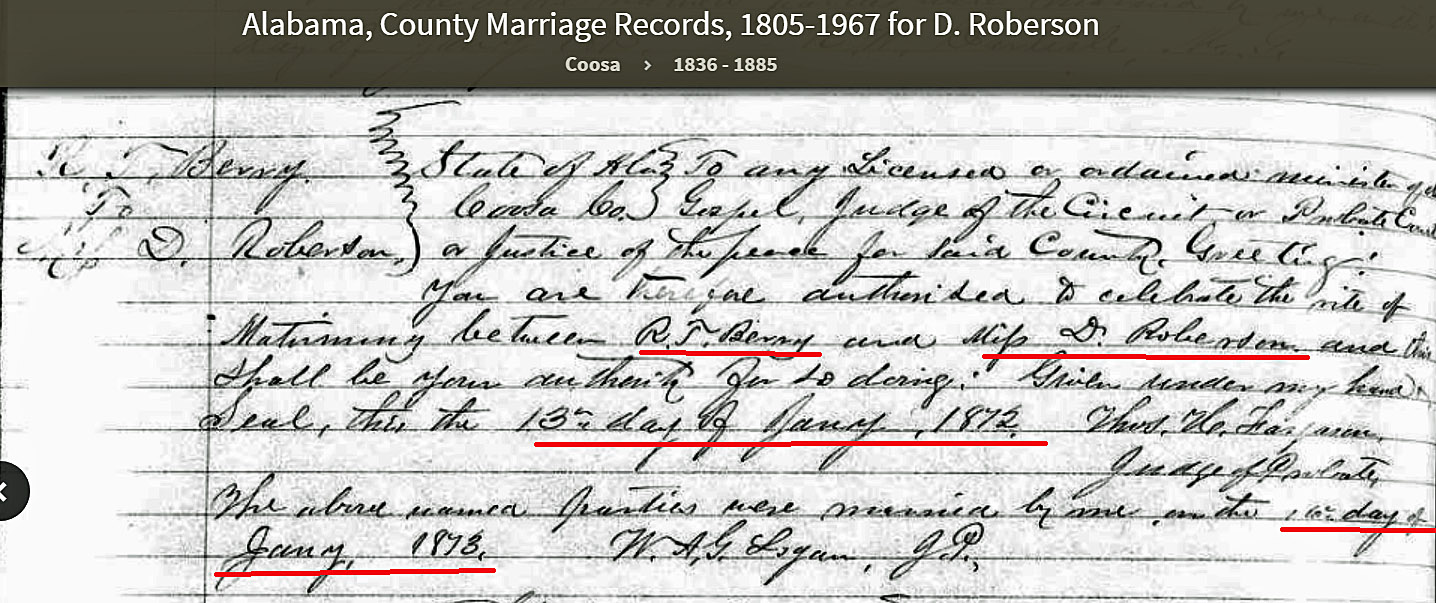 Alabama, County Marriage Records, 1805-1967 for D. Roberson
Coosa › 1836 - 1885
R. T. Berry
To
Miss D. Roberson
State of Ala } To any Licensed or ordained minister of
Coosa Co. } Gospel, Judge of the Circuit or Probate Court
or Justice of the peace for said County, Greeting!
You are therefore authorised to celebrate the rite of
Matrimony between R. T. Berry and Miss D. Roberson and this
Shall be your authority for so doing. Given under my hand
Seal, this the 13th day of Jany, 1873. Thos. H.
Judge of Probate,
The above named parties were married by me on the day of
Jany, 1873. W. A. G. Logan, J.P.,